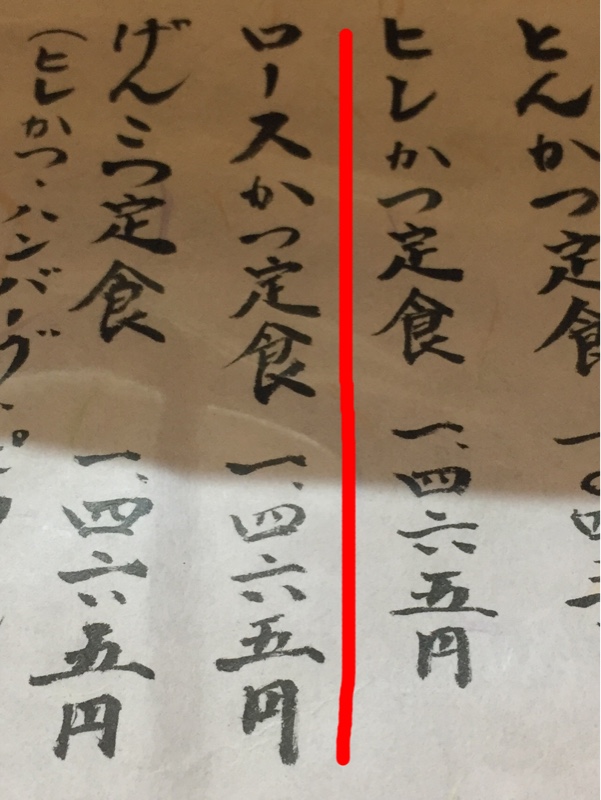 とんかつ定食 一、〇四
ヒレかつ定食 一、四六五円
ロースかつ定食 一、四六五円
げん三つ定食 一、四六五円
（ヒレかつ・ハンバーグ